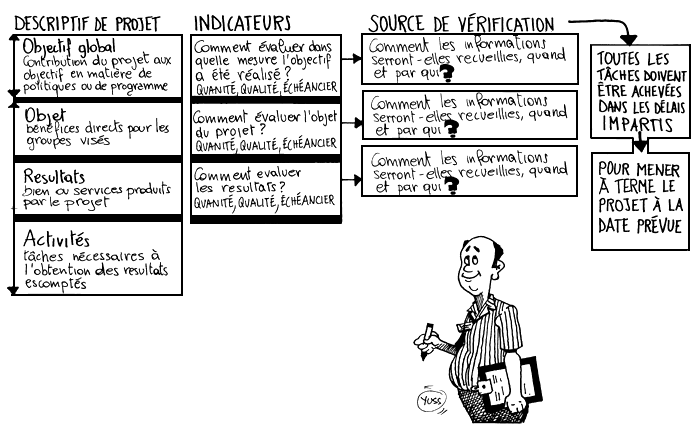 DESCRIPTIF DE PROJET
Objectif global
Contribution du projet aux
objectif en matière de
politiques ou de programme
Objet
bénéfices directs pour les
groupes visés
Resultats
bien ou services produits
par le projet
Activités
tâches nécessaires à
l'obtention des resultats
escomptés
INDICATEURS
Comment évaluer dans
quelle mesure l'objectif
a été réalisé ?
QUANITÉ, QUALITÉ, ÉCHÉANCIER
Comment évaluer l'objet
du projet ?
QUANITÉ, QUALITÉ, ÉCHÉANCIER
Comment evaluer
les resultats ?
QUANITÉ, QUALITÉ, ÉCHÉANCIER
SOURCE DE VÉRIFICATION
Comment les informations
serront-elles recueillies, quand
et par qui ?
Comment les informations
serront-elles recueillies, quand
et par qui ?
Comment les informations
serront-elles recueillies, quand
et par qui ?
TOUTES LES
TÂCHES DOIVENT
ÊTRE ACHEVÉES
DANS LES DÉLAIS
IMPARTIS
POUR MENER
À TERME LE
PROJET À LA
DATE PRÉVUE
YUSS